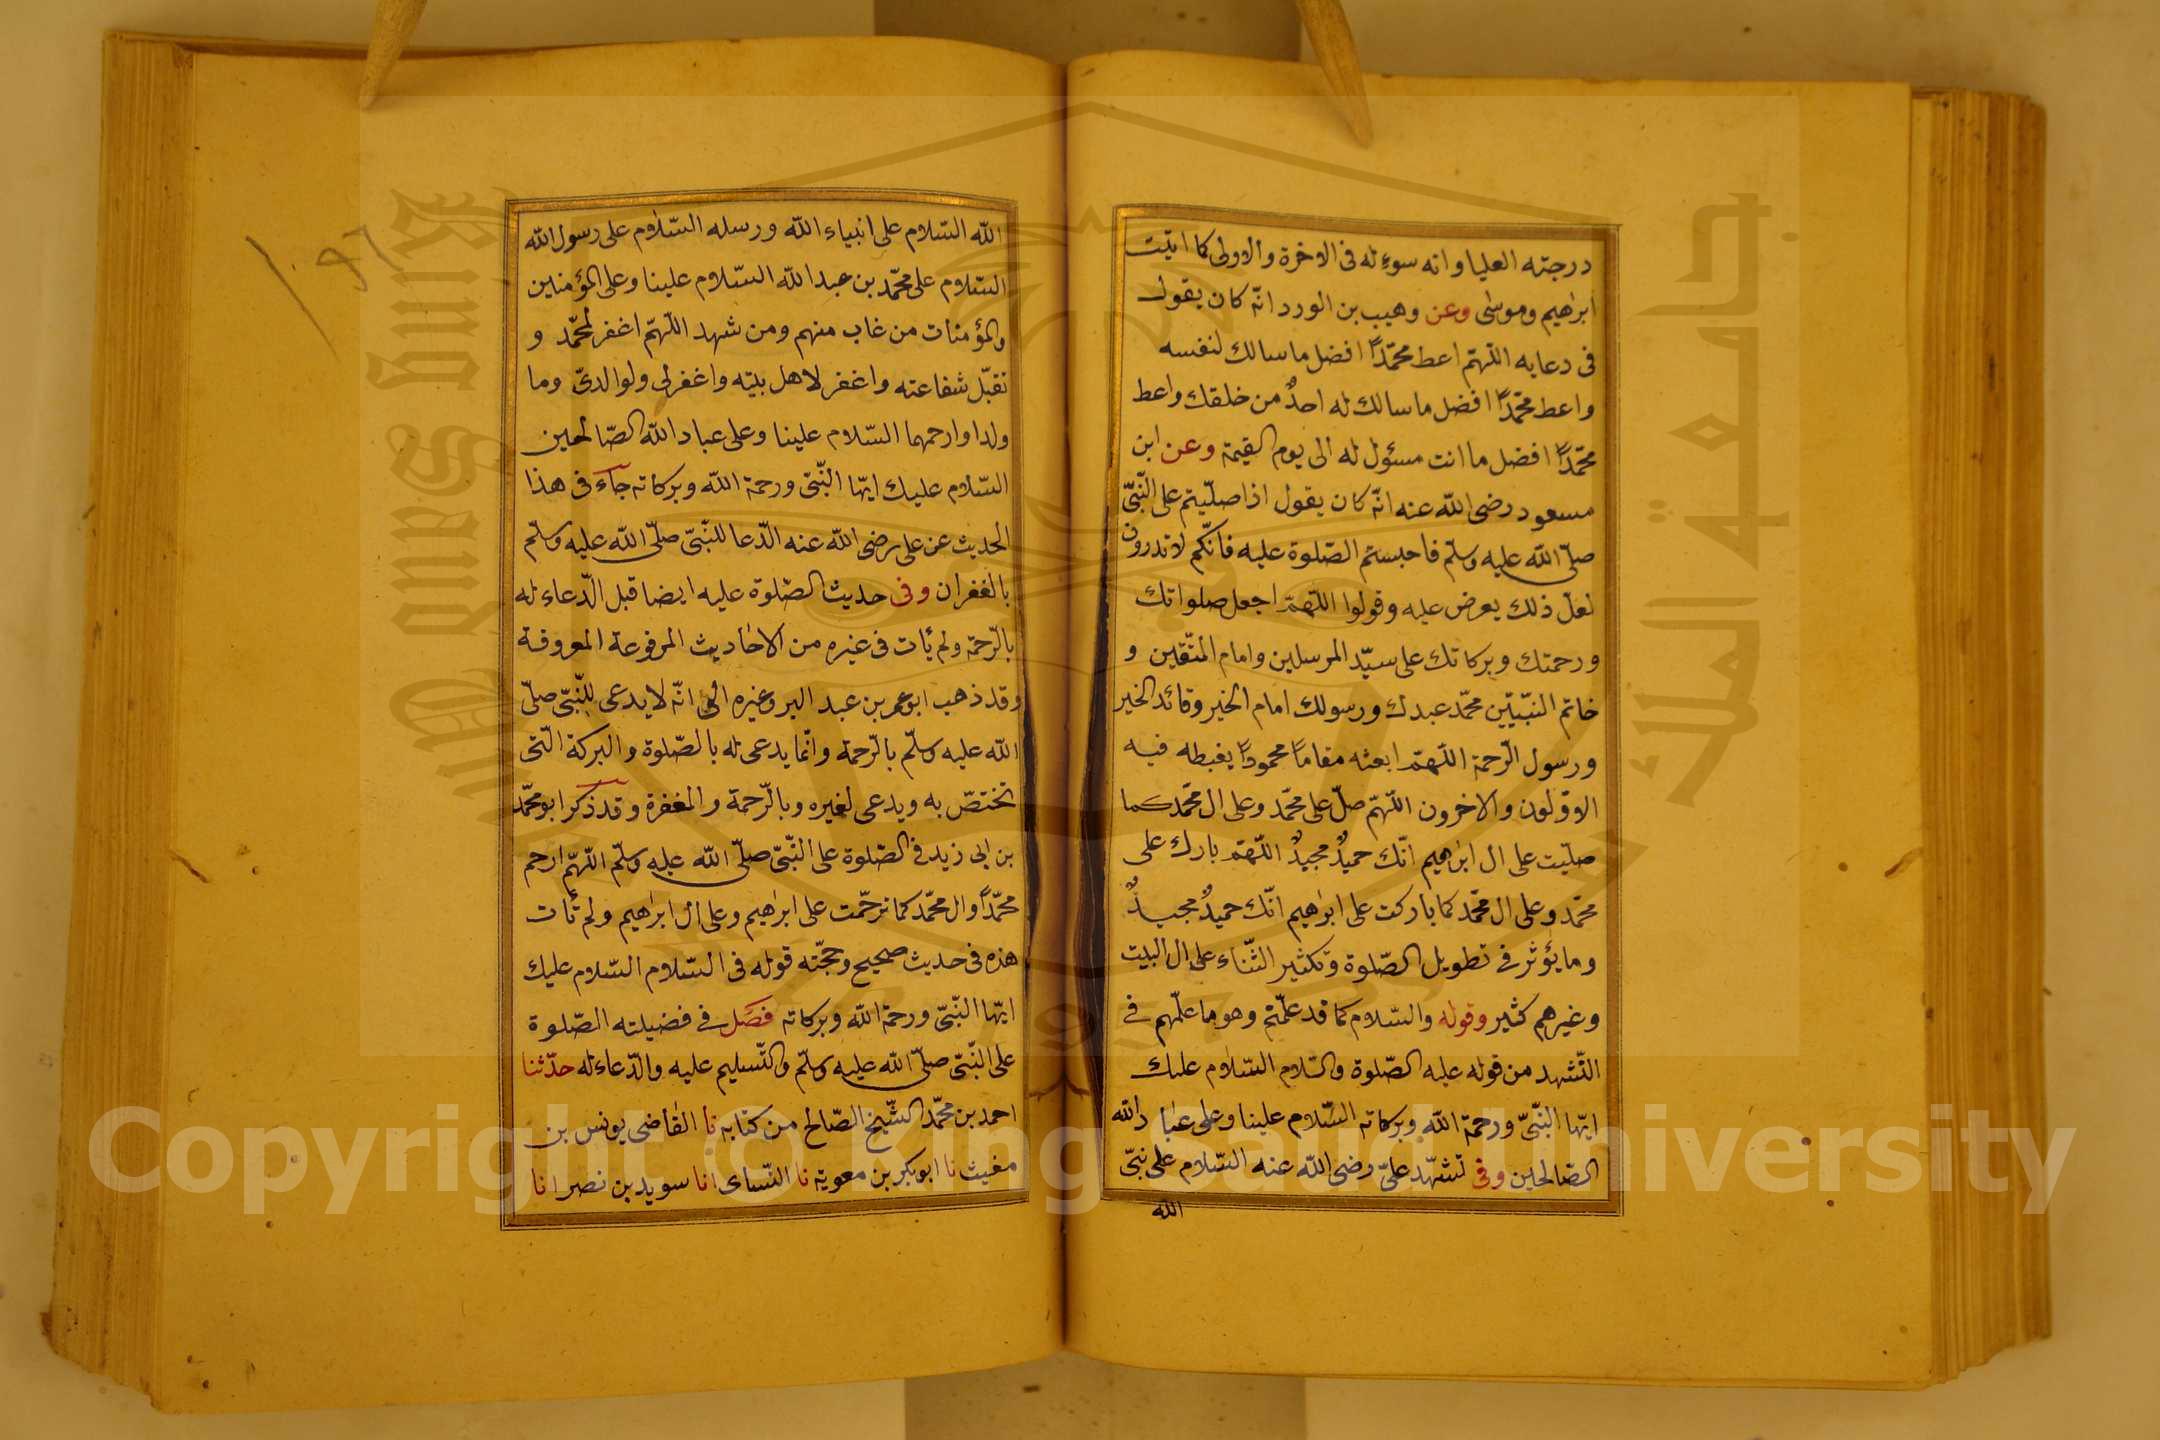 درجته العليا واته سوءله فى الاخرة والاولى كما اتيت
ابرٰهيم وموسٰى وعن وهيب بن الورد انّه كان يقول
فى دعايه اللّهمّ اعط محمّدًا افضل ما سالك لنفسه
واعط محمّدًا افضل ما سالك له احدٌ من خلقك واعط
محمّدًا افضل ما انت مسئول له الى يوم القيٰمة وعن ابن
مسعود رضى اللّه عنه انّه كان يقول اذا صلّيتم على النّبىّ
صلّى اللّه عليه وسلّم فاحسنتم الصّلوة عليه فانّكم لا تدرون
لعلّ ذلك يعرض عليه وقولوا اللّهمّ اجعل صلواتك
ورحمتك وبركاتك على سيّد المرسلين وامام المتّقين و
خاتم النّبيّين محمّد عبدك ورسولك امام الخير وقائد الخير
ورسول الرّحمة اللّهمّ ابعثه مقامًا محمودًا يغبطه فيه
الاوّلون والاخرون اللّهمّ صلّ على محمّد وعلى ال محمّد كما
صلّيت على ال ابرٰهيم انّك حميدٌ مجيدٌ اللّهمّ بارك على
محمّد وعلى ال محمّد كما باركت على ابرٰهيم انّك حميدٌ مجيدٌ
وما يؤثر فى تطويل الصّلوة وتكثير الثّناء على ال البيت
وغيرهم كثير وقوله والسّلام كما قد علّمتم وهو ما علّمهم فى
التّشهد من قوله عليه الصّلوة والسّلام السّلام عليك
ايّها النّبىّ ورحمة اللّه وبركاته السّلام علينا وعلى عباد اللّه
الصّالحين وفى تشهّد علىّ رضى اللّه عنه السّلام على نبىّ
اللّه
اللّه السّلام على انبياء اللّه ورسله السّلام على رسول اللّه
السّلام على محمّد بن عبد اللّه السّلام علينا وعلى المؤمنين
والمؤمنات من غاب منهم ومن شهد اللّهمّ اغفر لمحمّد و
تقبّل شفاعته واغفر لاهل بيته واغفرلى ولوالدىّ وما
ولدا وارحمهما السّلام علينا وعلى عباد اللّه الصّالحين
السّلام عليك ايّها النّبىّ ورحمة اللّه وبركاته جاء فى هذا
الحديث عن على رضى اللّه عنه الدّعا للنّبىّ صلّى اللّه عليه وسلّم
بالغفران وفى حديث الصّلوة عليه ايضا قبل الدّعاء له
بالرّحمة ولم يأت فى غيره من الاحاديث المرفوعة المعروفة
وقد ذهب ابو عمر بن عبد البر وغيره الى انّه لا يدعى للنّبىّ صلّى
اللّه عليه وسلّم بالرّحمة وانّما يدعى له بالصّلوة والبركة الّتى
تختصّ به ويدعى لغيره وبالرّحمة والمغفرة وقد ذكر ابو محمّد
بن ابى زيد فى الصّلوة على النّبىّ صلّى اللّه عليه وسلّم اللّهمّ ارحم
محمّدًا وال محمّد كما ترحّمت على ابرٰهيم وعلى ال ابرٰهيم ولم تأت
هذه فى حديث صحيح وحجّته قوله فى السّلام السّلام عليك
ايّها النّبىّ ورحمة اللّه وبركاته فصل فى فضيلته الصّلوة
على النّبىّ صلّى اللّه عليه وسلّم والتّسليم عليه والدّعاء له حدّثنا
احمد بن محمّد الشّيخ الصّالح من كتابه نا القاضى يونس بن
مغيث نا ابوبكر بن معوية نا النّساى انا سويد بن نصر انا